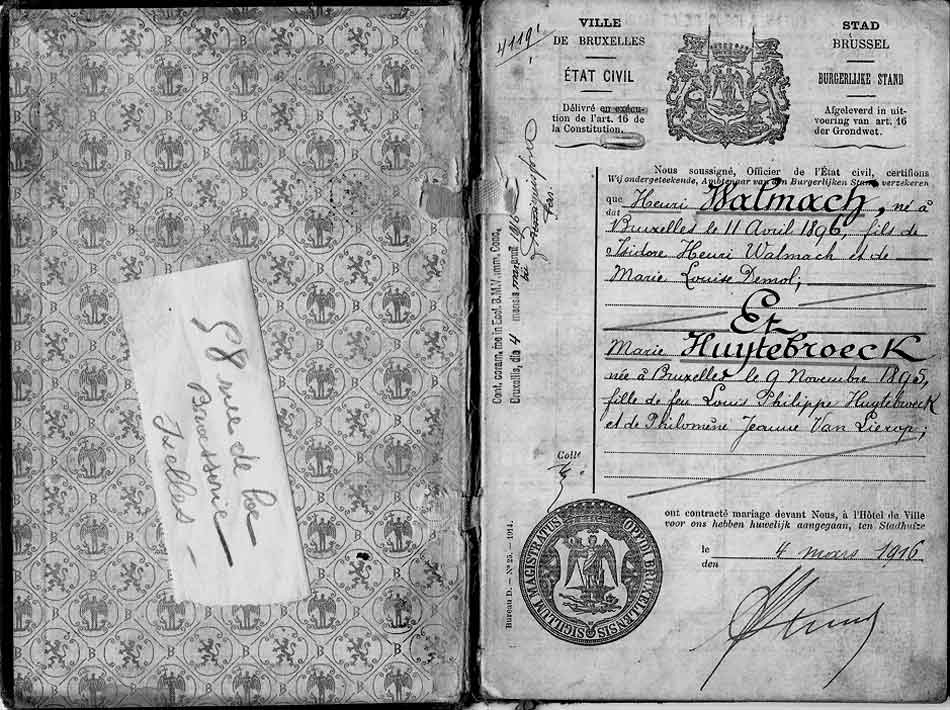 58 rue de la
Brasserie
Ixelles
VILLE
DE BRUXELLES
ÉTAT CIVIL
Délivré en exécu-
tion de l'art. 16 de
la Constitution.
STAD
BRUSSEL
BURGERLIJKE STAND
Afgeleverd in uit-
voering van art. 16
der Grondwet.
Nous soussigné, Officier de l'État civil, certifions
Wij ondergeteekende, Ambtenaar van den Burgerlijken Stand, verzekeren
que Henri Walmach, né à
dat
Bruxelles le 11 Avril 1896, fils de
Isidore Henri Walmach et de
Marie Louise Demol;
Et
Marie Huytebroeck
née à Bruxelles le 9 Novembre 1895,
fille de feu Louis Philippe Huytebroeck
et de Philomène Jeanne Van Lierop;
ont contracté mariage devant Nous, à l'Hôtel de Ville
voor ons hebben huwelijk aangegaan, ten Stadhuize
le 4 mars 1916
den
Cont. coram. me in Eccl. B.M.V. imm. Conc.
Bruxellis, die 4 mensis 1916
Coll.
Bureau D. — Nº 25. — 1914.
SIGILLUM MAGISTRATUS OPPIDI BRUXELLENSIS